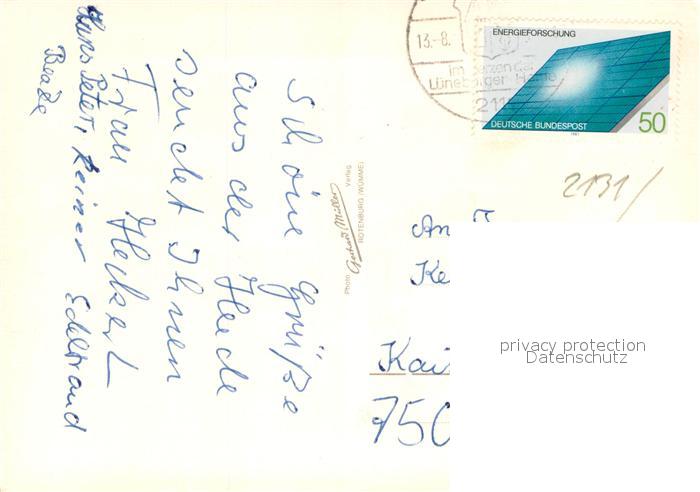 Schöne Grüße
aus der Heide
sendet Ihnen
Frau Heckert
Hans Peter, Reiner
Beate
Photo Gerhard Müller Verlag
ROTENBURG (WÜMME)
13.-8.
im Herzen der
Lüneburger Heide
211
ENERGIEFORSCHUNG
DEUTSCHE BUNDESPOST
50
1981
2131/
An
Ke
Kai
750
privacy protection
Datenschutz